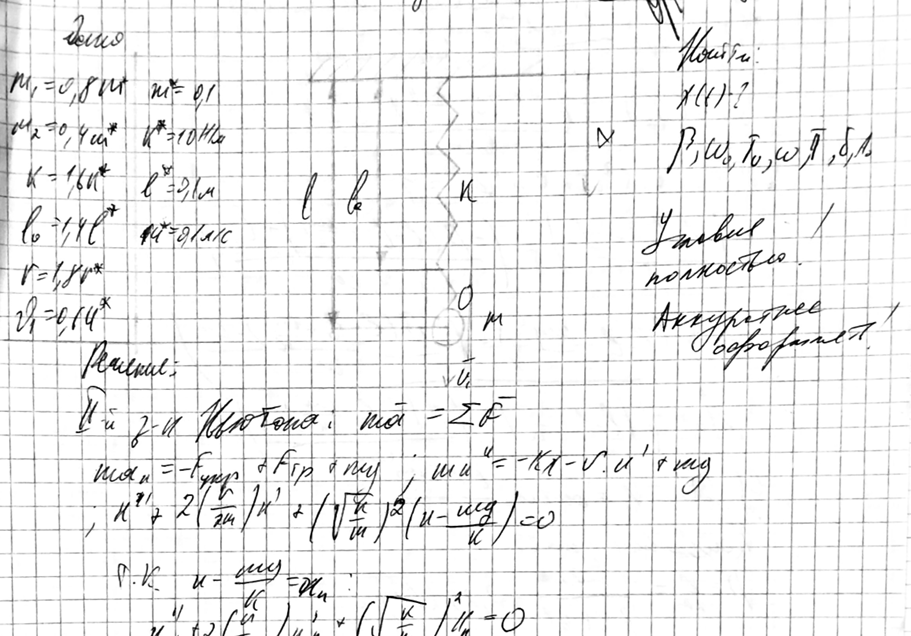 Дано
m₁ = 0,8m* m* = 0,1
m₂ = 0,4m* k* = 10 Н/м
k = 1,6k* l* = 0,1м
l₀ = 1,4l* u* = 0,1м/с
r = 1,8r*
ϑ₁ = 0,6u*
l l₀ k
0
m
v̄₁
Найти:
x(t)-?
β, ω₀, T₀, ω, T, δ, λ
Условие
полностью!
Аккуратнее
оформляет!
Решение:
II-й з-н Ньютона: mā = ΣF̄
maₓ = -Fупр + Fтр + mg ; mx'' = -kx - r·x' + mg
; x'' + 2(r/2m)x' + (√k/m)²(x - mg/k) = 0
т.к. x - mg/k = xₙ :
x'' + 2( )xₙ' + (√k/m)²xₙ = 0